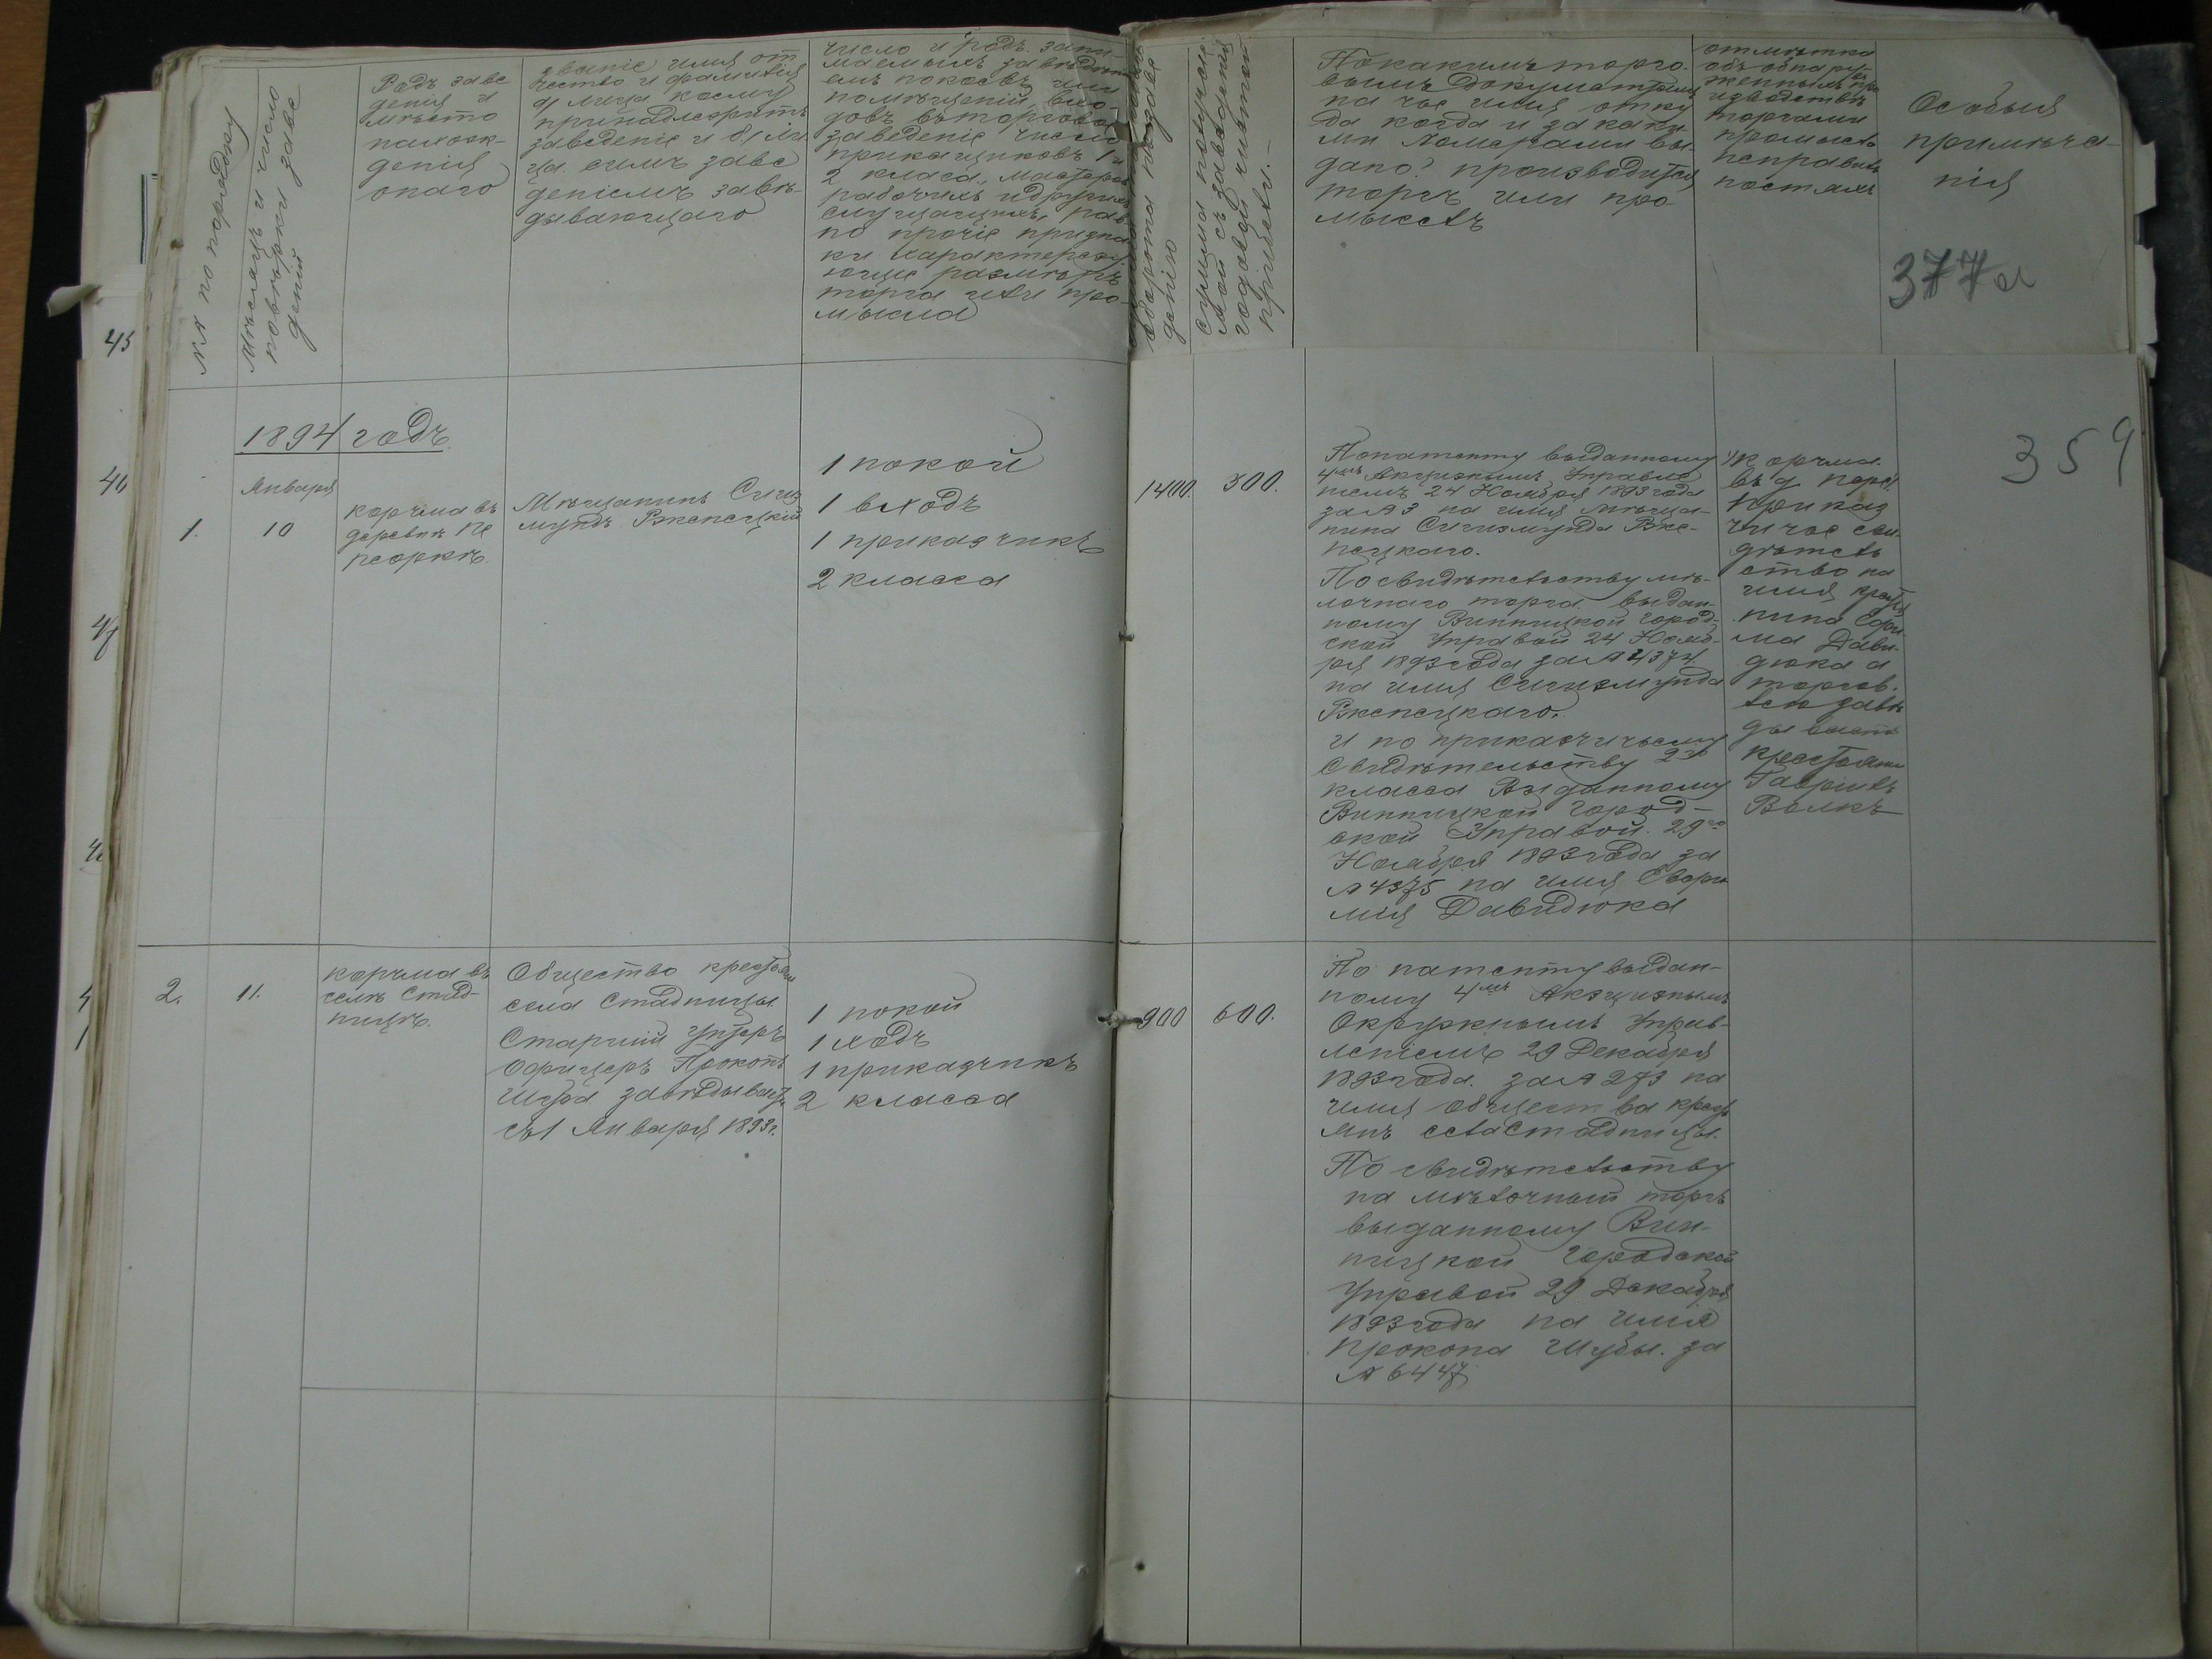 №№ по порядку
Мѣсяцъ и число
повѣрки заве
деній
Родъ заве
денія и
мѣсто
нахож-
денія
онаго
званіе имя от
чество и фамилія
а/ лица коему
принадлежитъ
заведеніе и б/ ли
ца симъ заве
деніемъ завѣ-
дывающаго
число и родъ зани
маемыхъ заведені
емъ покоевъ или
помѣщеній, вхо-
довъ въ торговое
заведеніе число
прикащиковъ 1 и
2 класса, мастеровъ
рабочихъ и другихъ
служащихъ, рав
но прочіе призна
ки характеризу
ющіе размѣръ
торга или про-
мысла
оборота по заве
денію
сумма получае
мой съ заведенія
годовой чистой
прибыли.-
По какимъ торго-
вымъ документамъ
на чье имя, отку
да когда и за каки
ми Номерами вы
дано? производится
торгъ или про-
мыселъ
отмѣтка
объ обнару-
женныхъ въ про
изводствѣ
торговли
промысл
неправиль
ностяхъ
Особыя
примѣча-
нія
377а
1894 годъ
359
1.
Января
10
корчма въ
деревнѣ Пе
песоркѣ.
Мѣщанинъ Сигиз
мундъ Ржепецкій
1 покой
1 входъ
1 приказчикъ
2 класса
1400.
300.
По патенту выданному
4мъ Акцизнымъ Управле
ніемъ 24 Ноября 1893 года
за № 3 на имя мѣща-
нина Сигизмунда Рже-
пецкаго.
По свидѣтельству мѣ-
лочнаго торга выдан-
ному Винницкой Город-
ской Управой 24 Нояб-
ря 1893 года за № 4374
на имя Сигизмунда
Ржепецкаго.
и по приказчичьему
Свидѣтельству 2го
класса Выданному
Винницкой Город-
ской Управой. 29го
Ноября 1893 года за
№ 4375 на имя
Давидюка
Корчма.
въ д
Приказ
чичое сви
дѣтель
ство на
имя крестья
нина Ефи-
ма Дави-
дюка а
торгов-
лею завѣ
дываетъ
крестьянинъ
Гавріилъ
Волкъ
2.
11.
корчма въ
селѣ Стад-
ницѣ.
Общество крестьянъ
села Стадницы.
Старшій Унтеръ
Офицеръ Прокопъ
Шуба завѣдываетъ
съ 1 Января 1893 г.
1 покой
1 ходъ
1 приказчикъ
2 класса
900
600.
По патенту выдан-
ному 4мъ Акцизнымъ
Окружнымъ Управ-
леніемъ 29 Декабря
1893 года. за № 273 на
имя общества кресть
янъ села Стадницы.
По свидѣтельству
на мѣлочный торгъ
выданному Вин-
ницкой Городской
Управой 29 Декабря
1893 года на имя
Прокопа Шубы. за
№ 6447
45
46
47